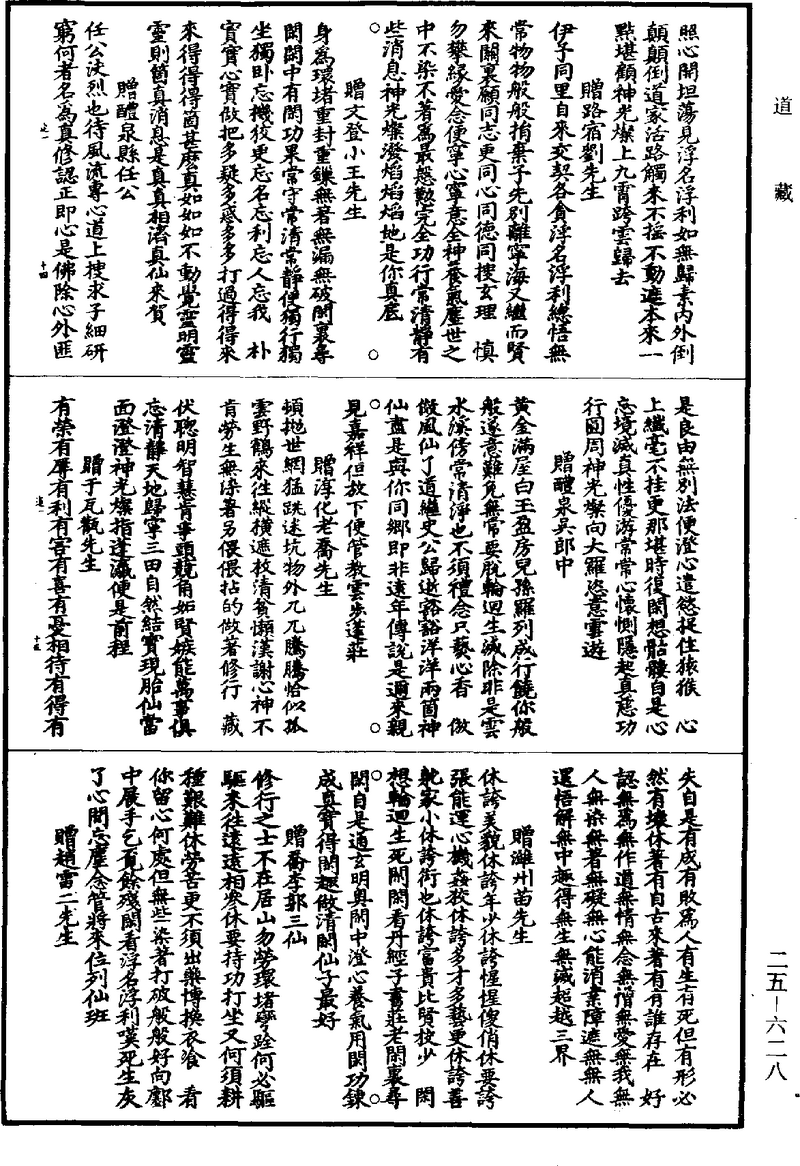 道藏
照心開坦蕩見浮名浮利如無歸素內外倒
顛顛倒道家活路觸來不搖不動遮本來一
點堪顧神光燦上九霄跨雲歸去
贈路宿劉先生
伊予同里自來交契各貪浮名浮利總悟無
常物物般般捐棄予先別離寧海又繼而賢
來關裏願同志更同心同德同搜玄理　慎
勿攀緣愛念便寧心寧意全神養氣塵世之
中不染不著為最慇懃完全功行常清靜有
些消息神光燦潑焰焰焰地是你真底
贈文登小王先生
身為環堵重封重鏁無著無漏無破閑裏尋
閑閑中有閑功果常守常清常靜使獨行獨
坐獨卧忘機狡更忘名忘利忘人忘我　朴
實實心實做把多疑多惑多多打過得得來
來得得得箇甚麼真如如如不動覺靈明靈
靈則箇真消息是真真相渚真仙來賀
贈醴泉縣任公
任公決烈也侍風流專心道上搜求子細研
窮何者名為真修認正即心是佛除心外匪
是良由無別法便澄心遣慾捉住猿猴　心
上纖毫不挂更那堪時復閑想骷髏自是心
忘境滅真性優游常常心懷惻隱起真慈功
行圓周神光燦向大羅恣意雲遊
贈醴泉吳郎中
黃金滿屋白玉盈房兒孫羅列成行饒你般
般遂意難免無常要脫輪迴生滅除非是雲
水溪傍常清淨也不須禮念只爇心香　倣
做風仙了道繼史公歸逝豁豁洋洋兩箇神
仙盡是與你同鄉即非遠年傳說是邇來親
見嘉祥但放下便管教雲步蓬莊
贈淳化老喬先生
頓拋世網猛跳迷坑物外兀兀騰騰恰似孤
雲野鶴來往縱橫遮枝清貧懶漢謝心神不
肯勞生無染著另偎偎拈的做著修行　藏
伏聰明智慧肯爭頭競角妬賢嫉能萬事俱
忘清靜天地歸寧三田自然結寶現胎仙當
面澄澄神光燦指蓬瀛便是前程
贈于瓦氈先生
有榮有辱有利有害有喜有憂相待有得有
失自是有成有敗為人有生有死但有形必
然有壞休著有自古來著有有誰存在　好
認無為無作道無情無念無憎無愛無我無
人無染無著無礙無心能消業障遮無無人
還悟解無中趣得無生無滅超越三界
贈濰州苗先生
休誇美貌休誇年少休誇惺惺傻俏休要誇
張能運心機姦狡休誇多才多藝更休誇善
躭家小休誇衒也休誇富貴比賢狡少　閑
想輪迴生死閑閑看丹經子書莊老閑裏尋
閑自是通玄明奥閑中澄心養氣用閑功鍊
成真寶得閑趣做清閑仙子最好
贈喬李郭三仙
修行之士不在居山勿勞環堵寧跧何必驅
驅來往遠遠相參休要待功打坐又何須耕
種艱難休勞苦更不須出藥博換衣飡　看
你留心何處但無些染著打破般般好向鄽
中展手乞覓餘殘閑看浮名浮利嘆死生灰
了心閑忘塵念管將來位列仙班
贈趙雷二先生
二五－六二八